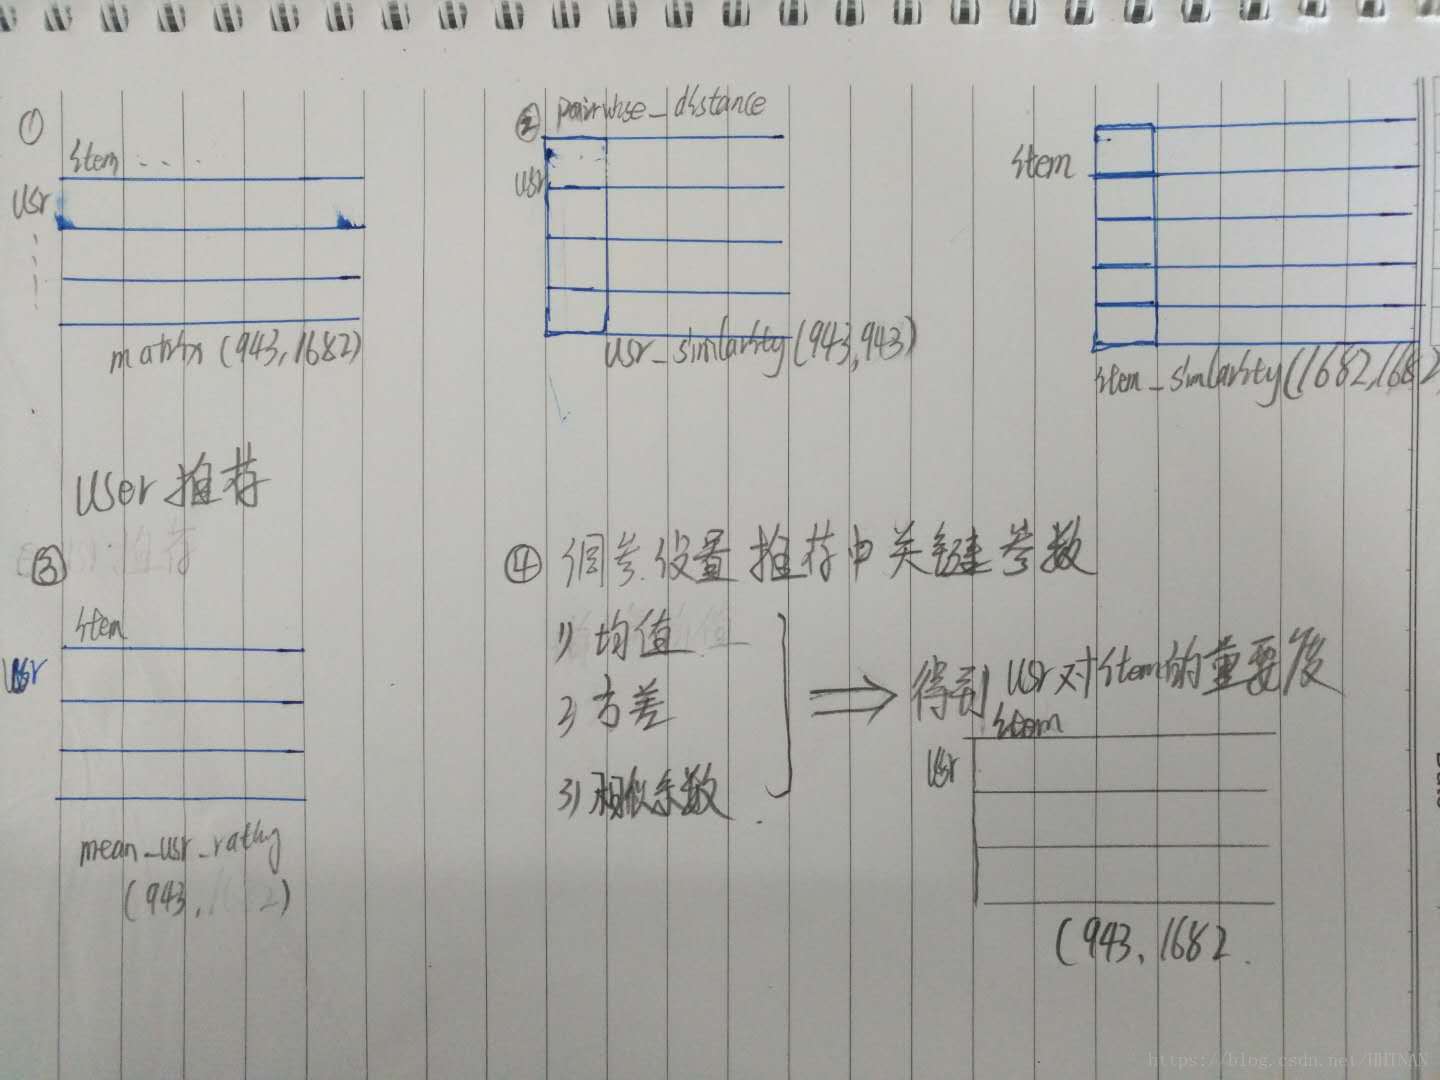 ①
item ....
usr
matrix (943,1682)
② pairwise_distance
usr
usr_similarity(943,943)
item
item_similarity(1682,1682
User 推荐
③
item
usr
mean_usr_rating
(943,1682)
④ 调参.设置 推荐中关键参数
1) 均值
2) 方差
3) 相似系数
得到 usr对item的重要度
item
usr
(943, 1682.
https://blog.csdn.net/HHTNAN